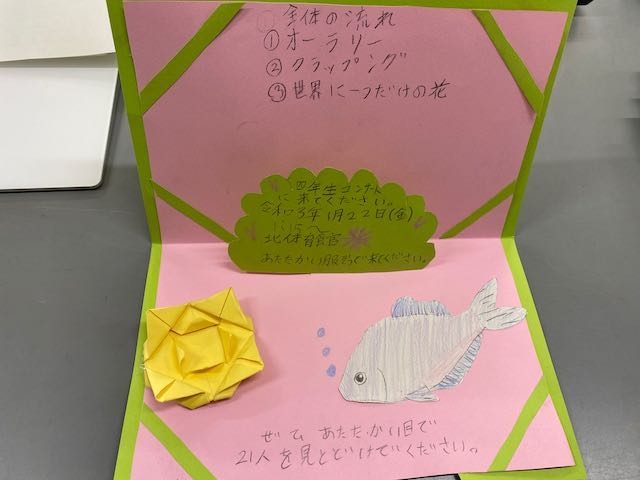 全体の流れ
①オーラリー
②クラッピング
③世界に一つだけの花
四年生コンサート
に来てください。
令和3年1月22日(金)
北体育館
あたたかい服そうで来てください。
ぜひ あたたかい目で
21人を見とどけてください。